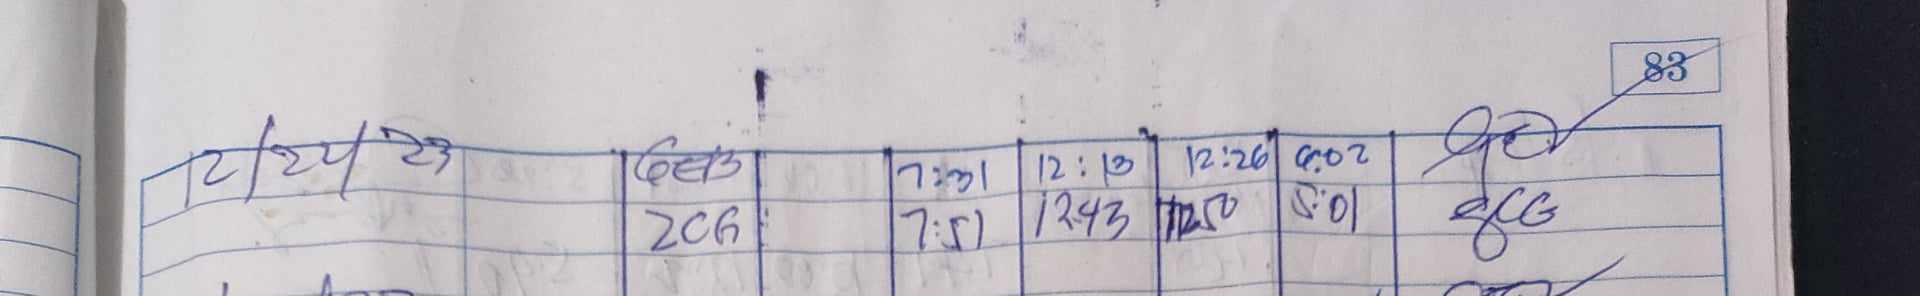 83
12/24/23 GEB 7:31 12:13 12:26 6:02
ZCG 7:51 1243 1250 5:01 ZCG